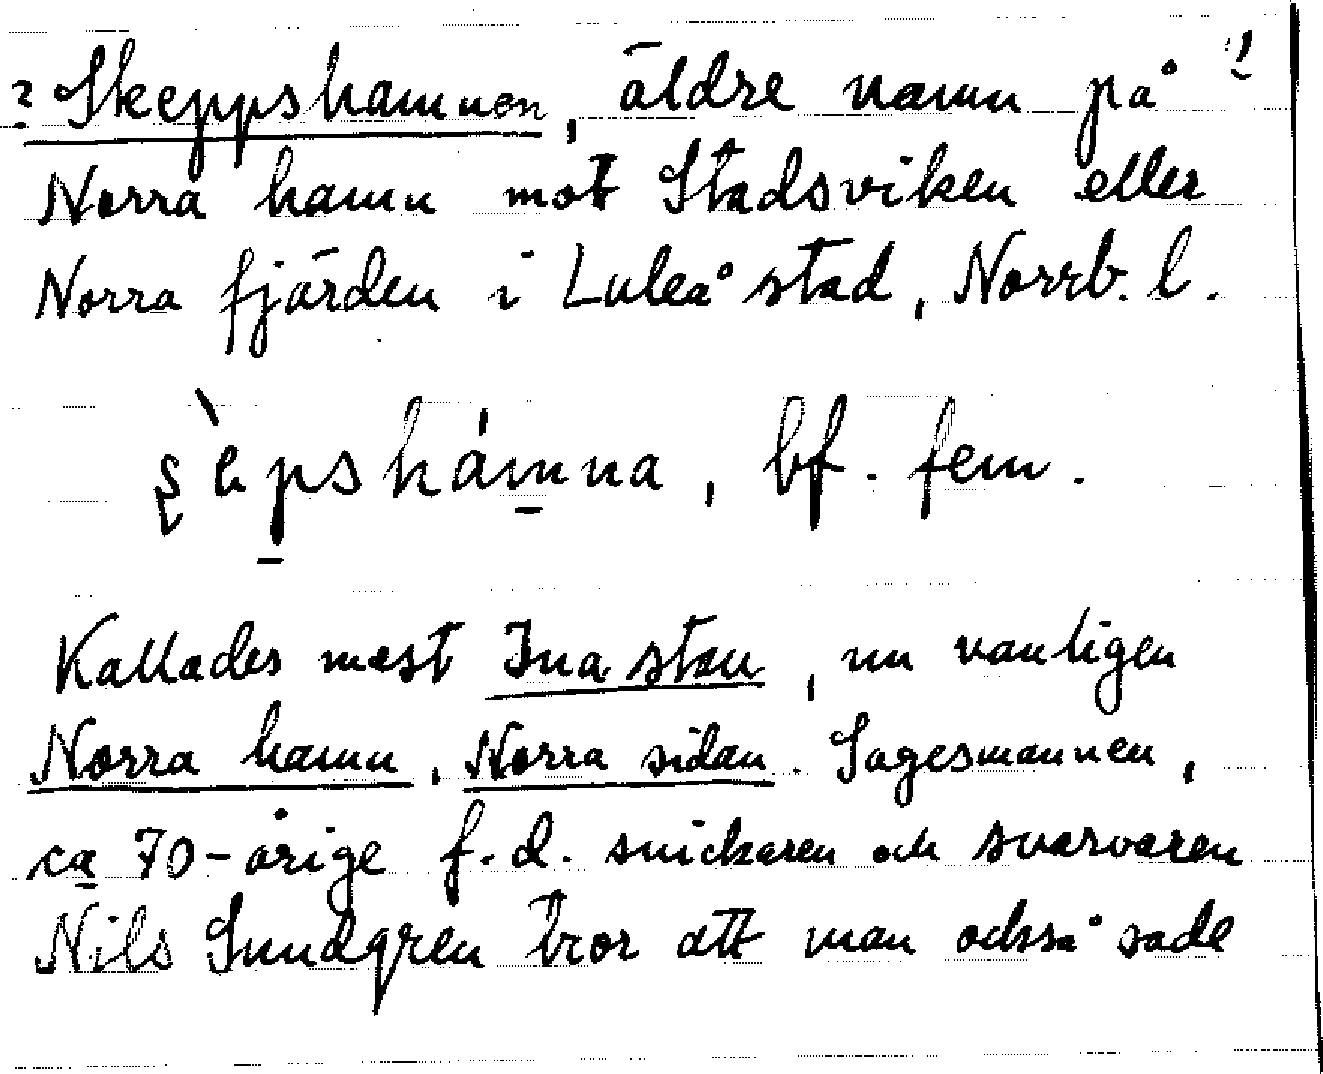 ? Skeppshamnen, äldre namn på ?!
Norra hamn mot Stadsviken eller
Norra fjärden i Luleå stad, Norrb. l.
bf. fem.
Kallades mest Ina stan, nu vanligen
Norra hamn, Norra sidan. Sagesmannen,
ca 70-årige f.d. snickaren och svarvaren
Nils Sundgren tror att man också sade